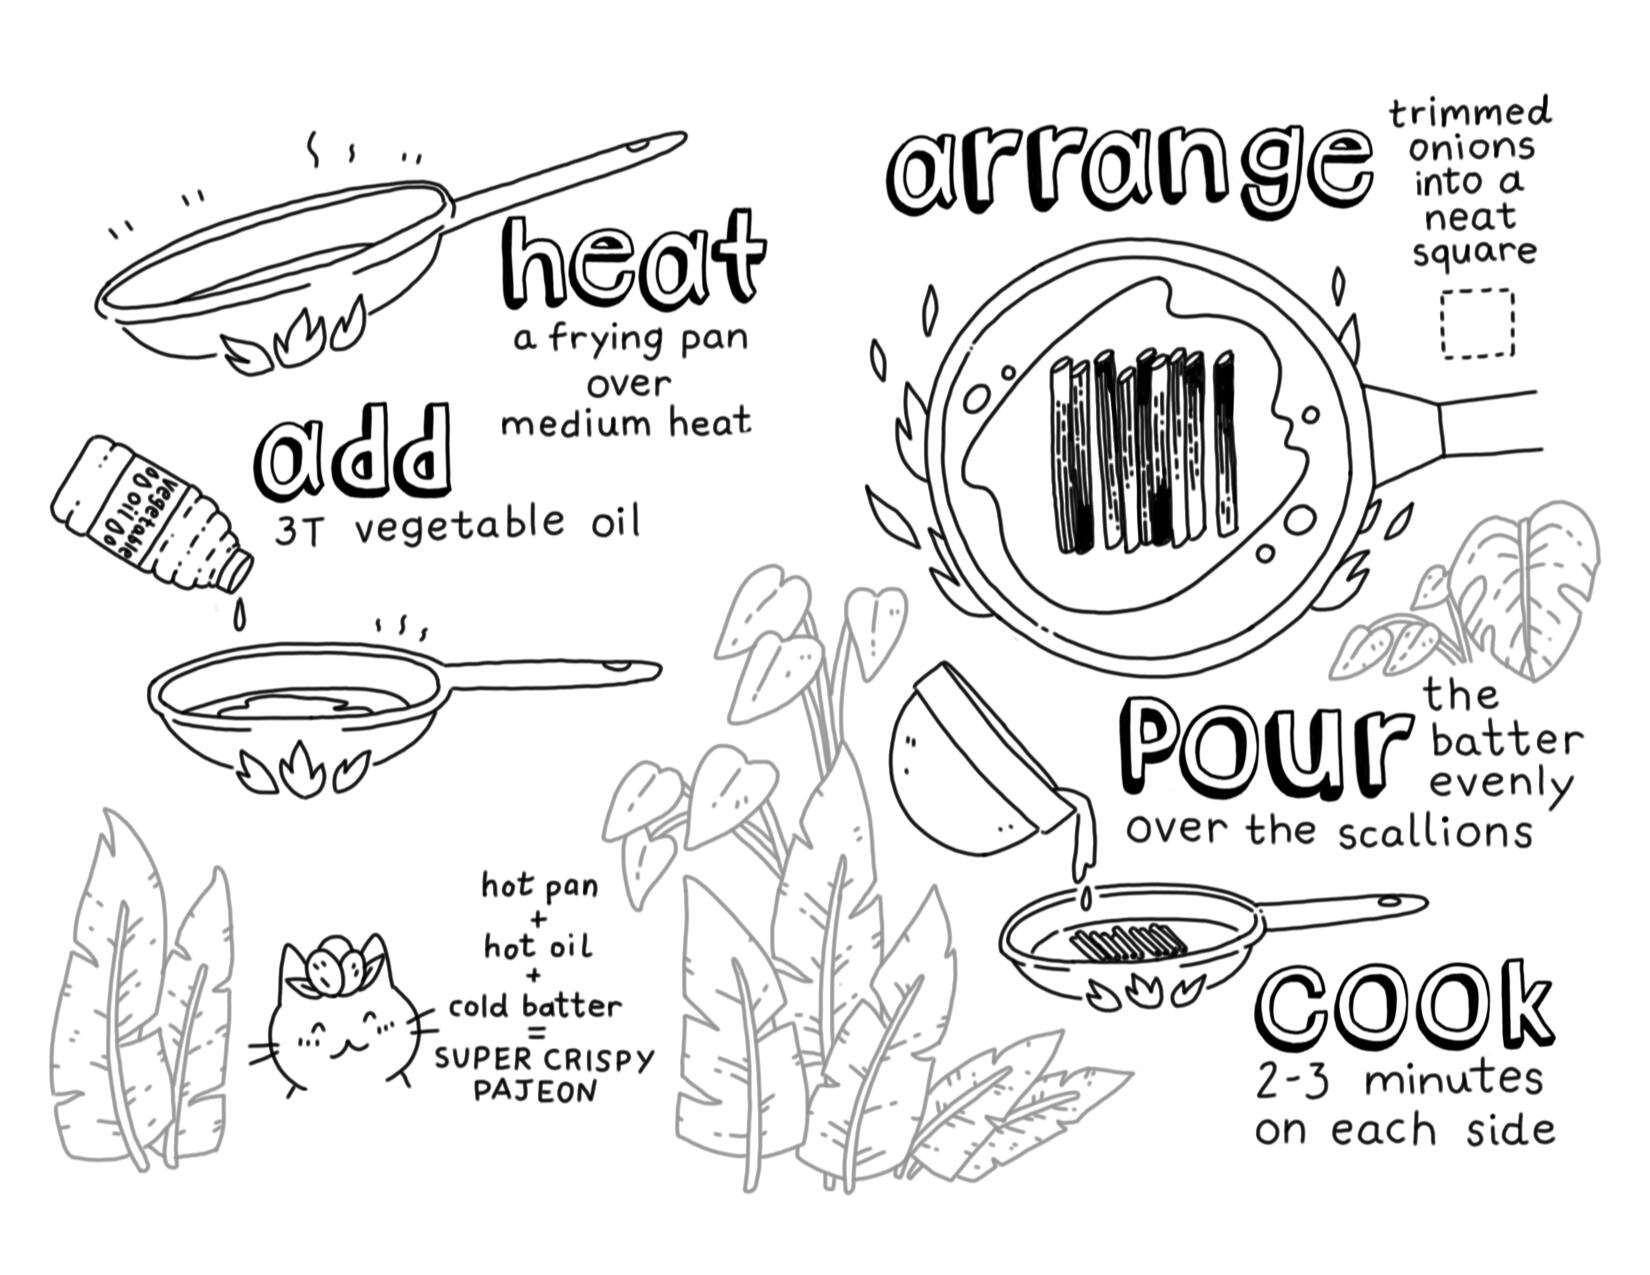 heat
a frying pan
over
medium heat
add
3T vegetable oil
vegetable
oil
hot pan
+
hot oil
+
cold batter
=
SUPER CRISPY
PAJEON
arrange
trimmed
onions
into a
neat
square
pour
the
batter
evenly
over the scallions
cook
2-3 minutes
on each side